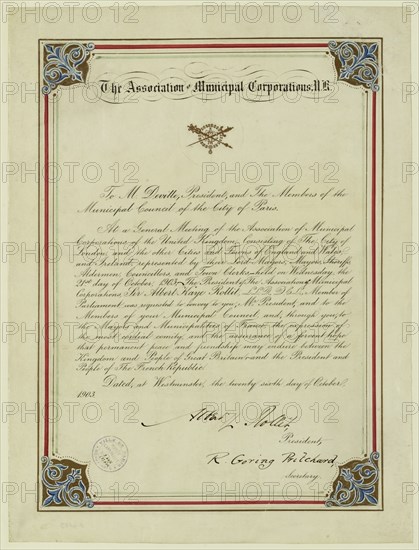 The Association of Municipal Corporations, U.K.
To M Deville, President, and The Members of the
Municipal Council of the City of Paris.
At a General Meeting of the Association of Municipal
Corporations of the United Kingdom, Consisting of The City of
London, and the other Cities and Towns of England and Wales
and Ireland, represented by their Lord Mayors, Mayors, Sheriffs
Aldermen, Councillors, and Town Clerks, held on Wednesday, the
21st day of October, 1903, The President of The Association of Municipal
Corporations, Sir Albert Kaye Rollit, Member of
Parliament was requested to convey to you, Mr President, and to the
Members of your Municipal Council, and, through you, to
the Mayors and Municipalities of France, the expression of
the most cordial amity, and the assurance of a fervent hope
that permanent peace and friendship may endure between the
Kingdom and People of Great Britain and the President and
People of The French Republic.
Dated, at Westminster, the twenty sixth day of October,
1903.
Albert K Rollit,
President,
R. Goring Pritchard,
Secretary.
PHOTO12